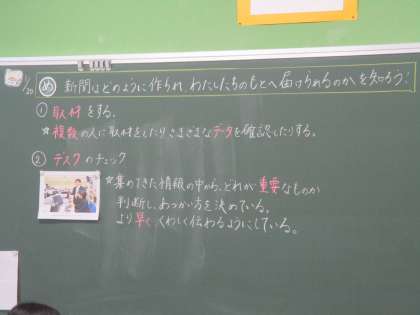 1/20
め 新聞はどのように作られ、わたしたちのもとへ届けられるのかを知ろう!
① 取材をする。
★複数の人に取材をしたりさまざまなデータを確認したりする。
② デスクのチェック
★集めてきた情報の中から、どれが重要なものか
判断し、あつかい方を決めている。
より早く、くわしく伝わるようにしている。